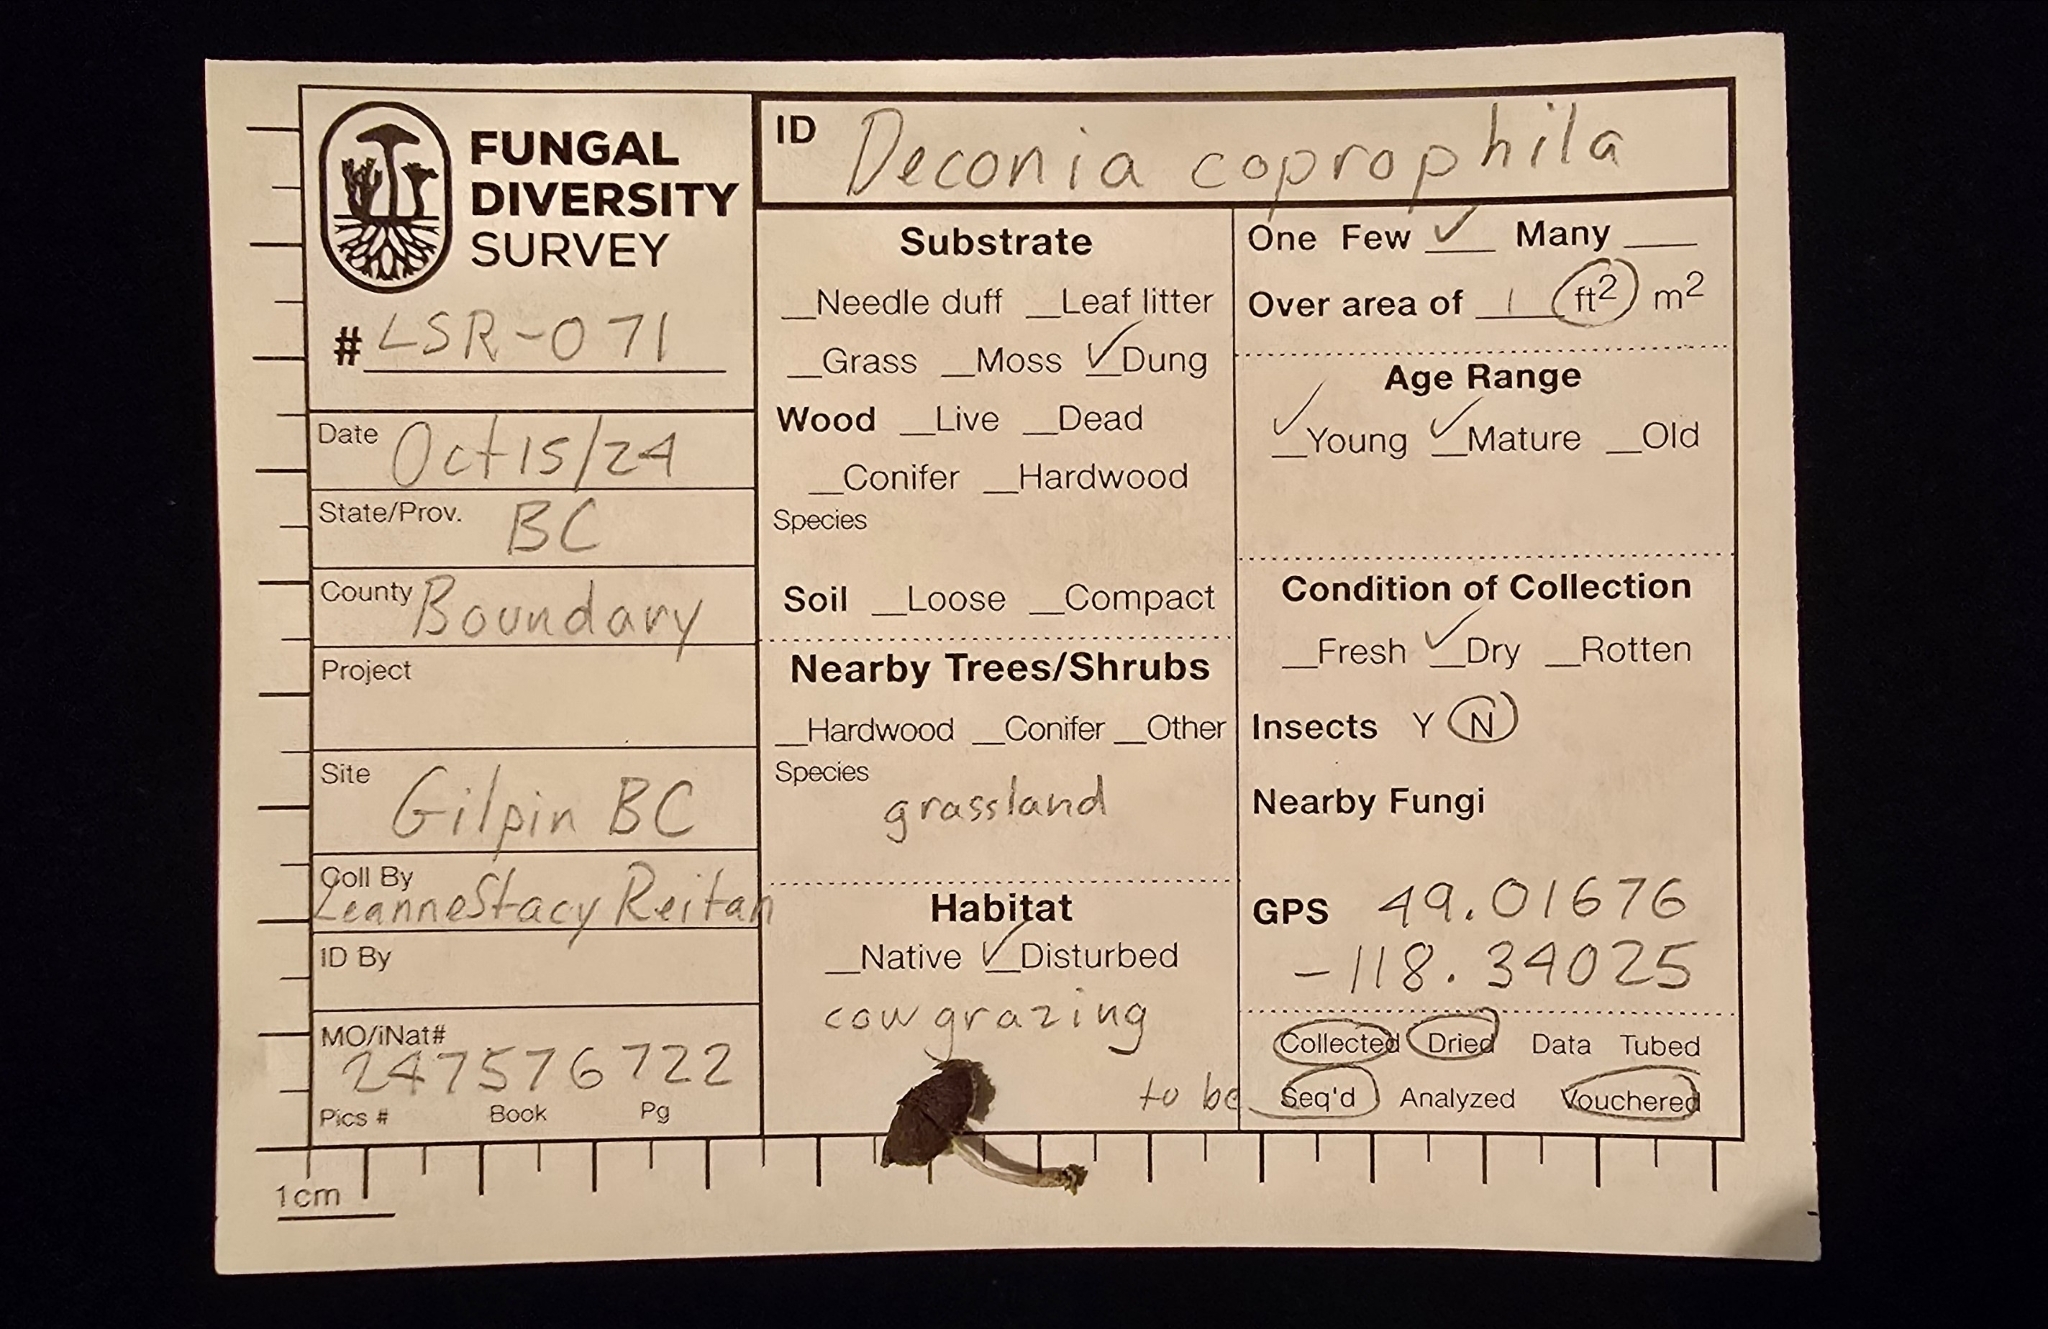 FUNGAL
DIVERSITY
SURVEY
# LSR-071
Date Oct 15/24
State/Prov. BC
County Boundary
Project
Site Gilpin BC
Coll By
Leanne Stacy Reitan
ID By
MO/iNat#
247576722
Pics # Book Pg
1cm
ID Deconia coprophila
Substrate
__Needle duff __Leaf litter
__Grass __Moss ✓Dung
Wood __Live __Dead
__Conifer __Hardwood
Species
Soil __Loose __Compact
Nearby Trees/Shrubs
__Hardwood __Conifer __Other
Species
grassland
Habitat
__Native ✓Disturbed
cow grazing
One Few ✓ Many ___
Over area of 1 ft² m²
Age Range
✓Young ✓Mature __Old
Condition of Collection
__Fresh ✓Dry __Rotten
Insects Y N
Nearby Fungi
GPS 49.01676
-118.34025
Collected Dried Data Tubed
to be Seq'd Analyzed Vouchered